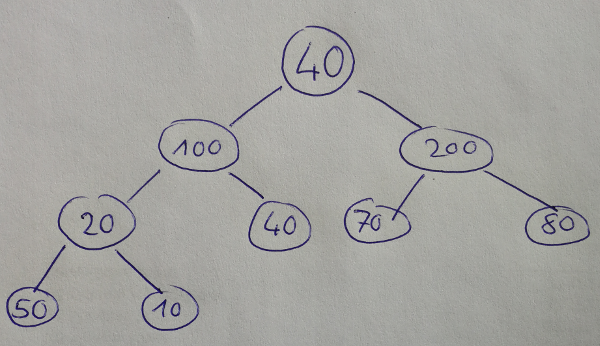 40
100 200
20 40 70 80
50 10